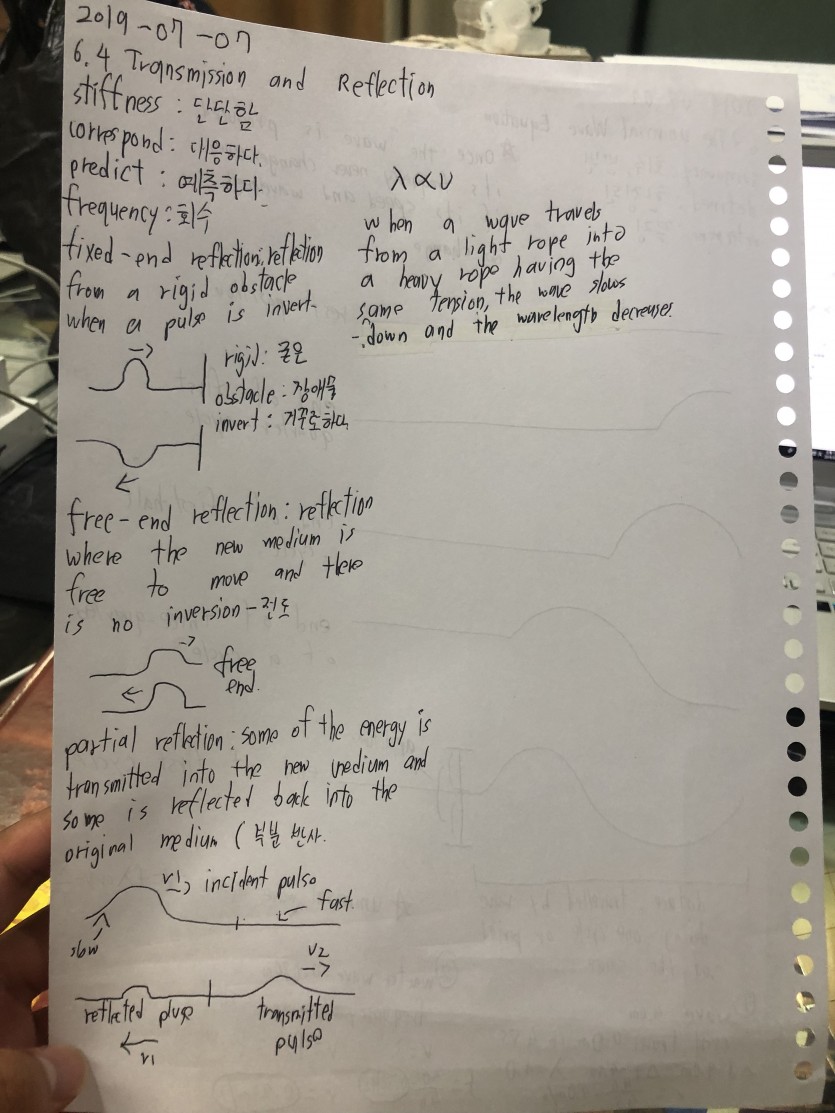 2019-07-07
6.4 Transmission and Reflection
stiffness : 단단함
correspond : 대응하다.
predict : 예측하다.
frequency : 회수
fixed-end reflection: reflection
from a rigid obstacle
when a pulse is invert-
rigid : 굳은
obstacle : 장애물
invert : 거꾸로하다.
λ∝v
when a wave travels
from a light rope into
a heavy rope having the
same tension, the wave slows
down and the wavelength decreases.
free-end reflection : reflection
where the new medium is
free to move and there
is no inversion - 전도
free
end.
partial reflection : some of the energy is
transmitted into the new medium and
some is reflected back into the
original medium (부분 반사.
v1 incident pulse
fast.
slow
v2
reflected pluse
transmitted
pulse
v1